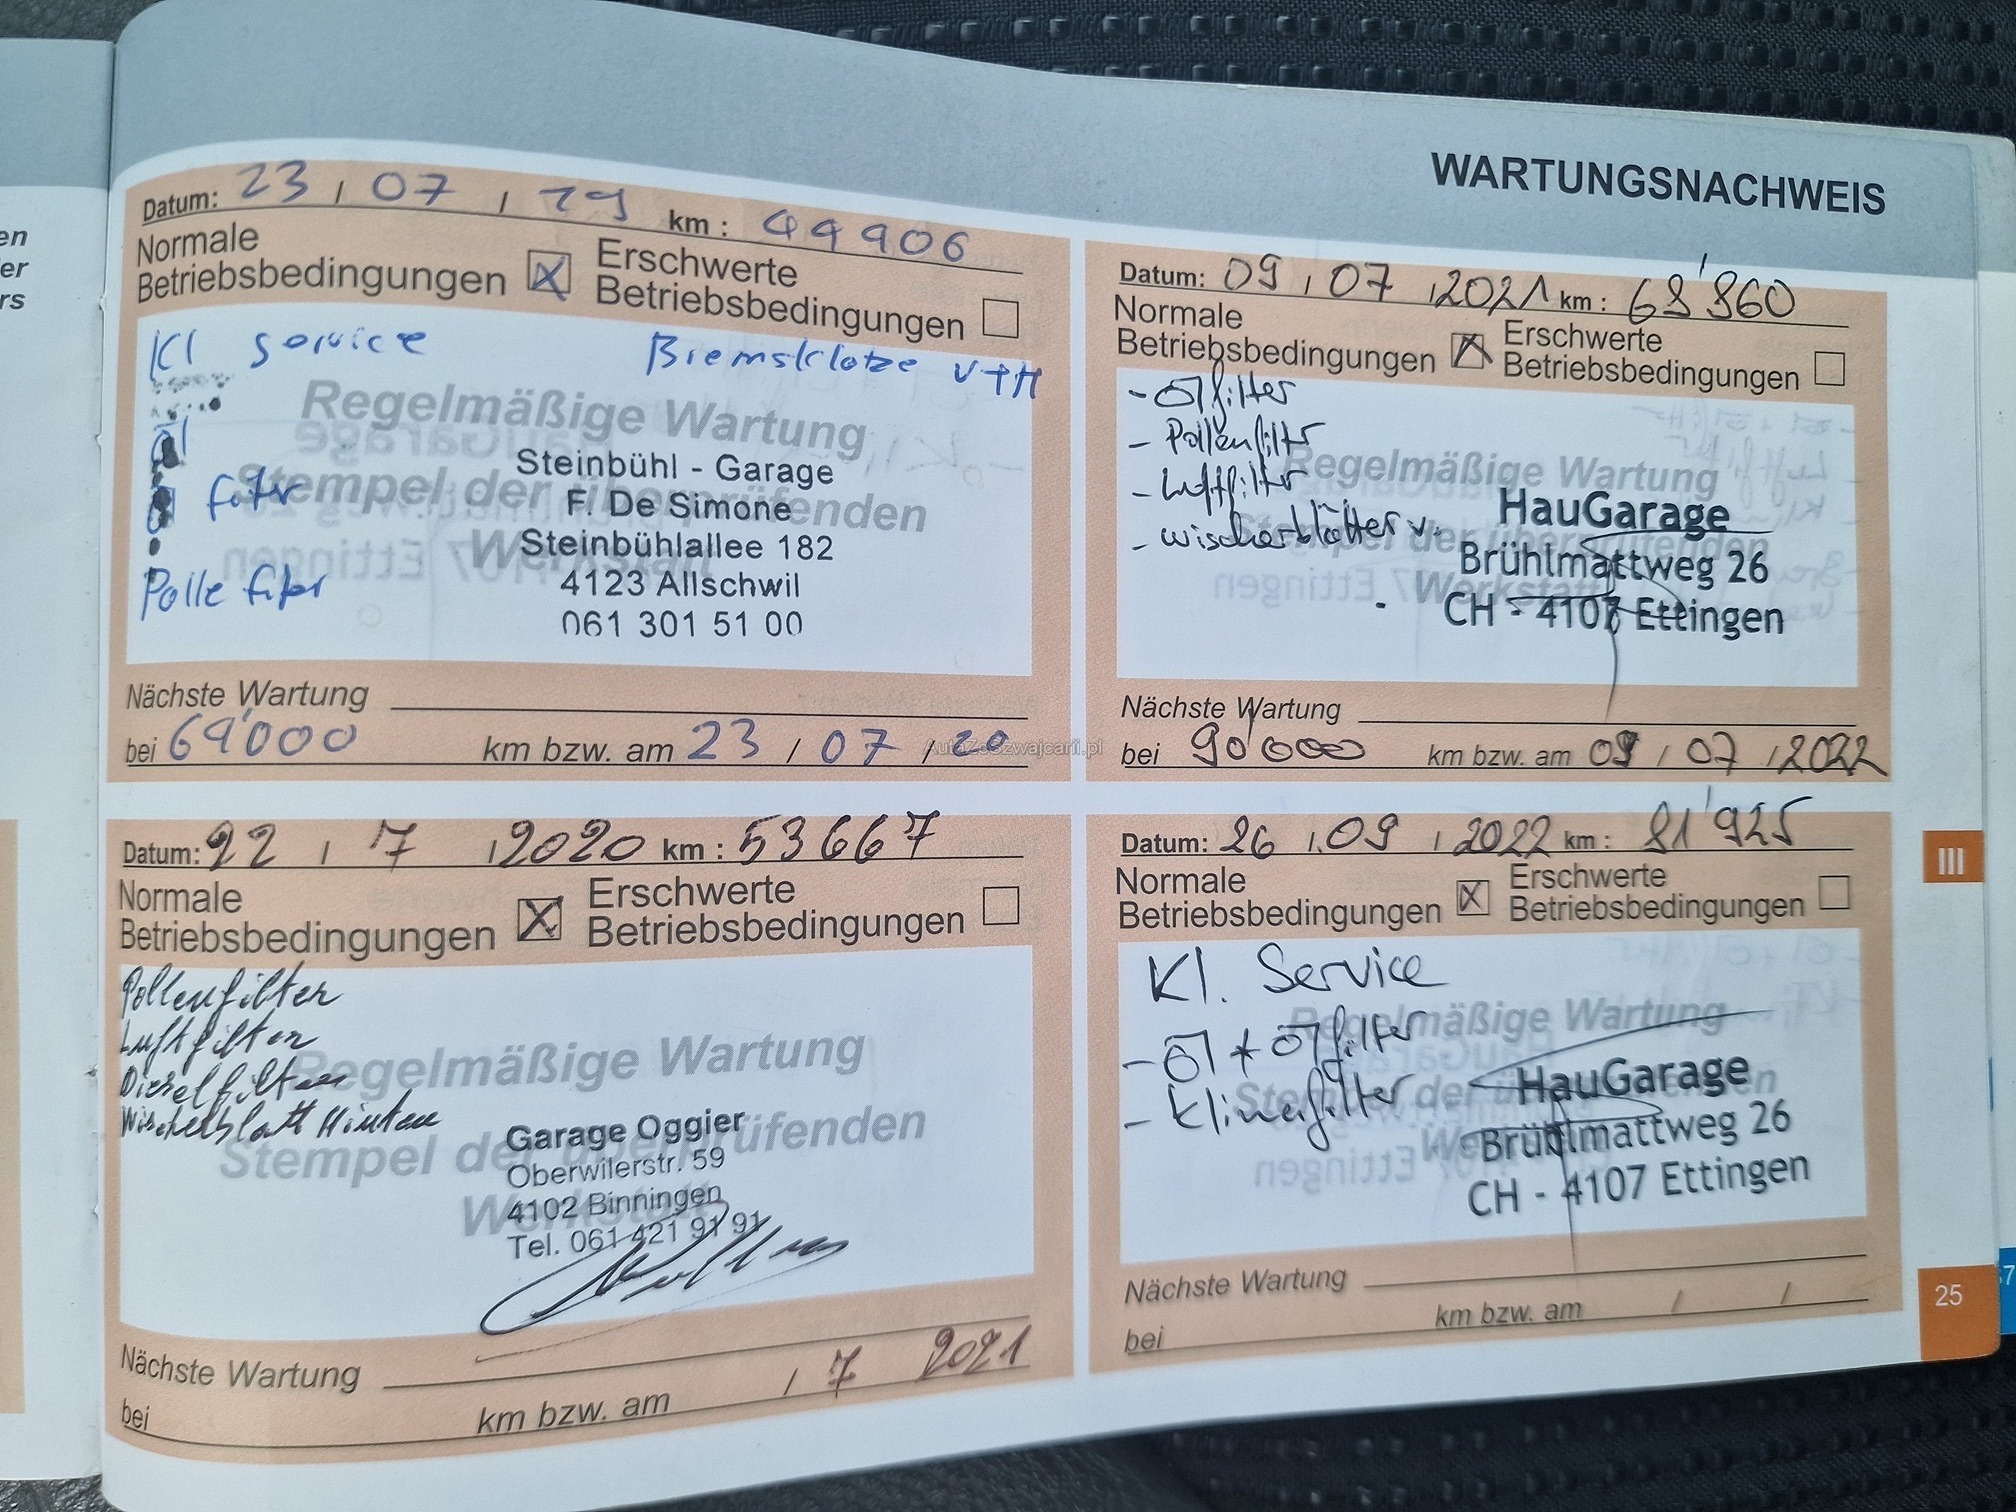 en
er
rs
WARTUNGSNACHWEIS
Datum: 23 / 07 / 19 km : 49906
Normale
Betriebsbedingungen X Erschwerte
Betriebsbedingungen
Kl service Bremsklotze V+H
Regelmäßige Wartung
Stempel der überprüfenden
Werkstatt
Öl
Polle filter
Steinbühl - Garage
F. De Simone
Steinbühlallee 182
4123 Allschwil
061 301 51 00
Nächste Wartung
bei 69'000 km bzw. am 23 / 07 / 20
Datum: 22 / 7 / 2020 km : 53667
Normale
Betriebsbedingungen X Erschwerte
Betriebsbedingungen
Pollenfilter
Luftfilter
Dieselfilter
Wischerblatt Hinten
Regelmäßige Wartung
Stempel der überprüfenden
Werkstatt
Garage Oggier
Oberwilerstr. 59
4102 Binningen
Tel. 061 421 91 91
Nächste Wartung
bei km bzw. am / 7 2021
Datum: 09 / 07 / 2021 km : 69'960
Normale
Betriebsbedingungen X Erschwerte
Betriebsbedingungen
- Ölfilter
- Pollenfilter
- Luftfilter
- wischerblätter v.
Regelmäßige Wartung
Stempel der überprüfenden
Werkstatt
HauGarage
Brühlmattweg 26
CH - 4107 Ettingen
Nächste Wartung
bei 90'000 km bzw. am 09 / 07 / 2022
Datum: 26 / 09 / 2022 km : 81'925
Normale
Betriebsbedingungen X Erschwerte
Betriebsbedingungen
Kl. Service
- Öl + Ölfilter
- Klimafilter
Regelmäßige Wartung
Stempel der überprüfenden
Werkstatt
HauGarage
Brühlmattweg 26
CH - 4107 Ettingen
Nächste Wartung
bei km bzw. am / /
III
25
AutaZeSzwajcarii.pl